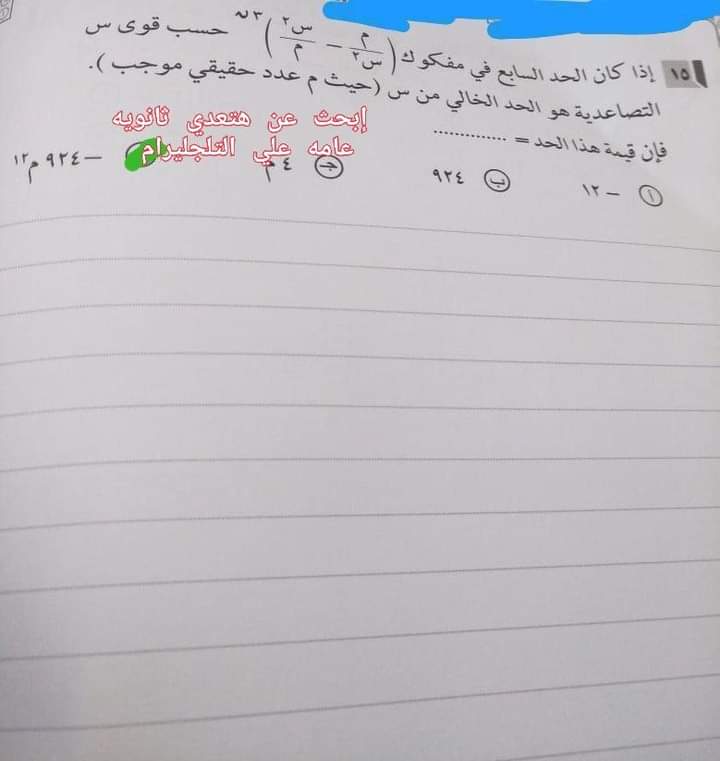 ١٥ إذا كان الحد السابع في مفكوك (م/س٢ − س٢/م)٣ن حسب قوى س
التصاعدية هو الحد الخالي من س (حيث م عدد حقيقي موجب).
فإن قيمة هذا الحد = ..............
إبحث عن هتعدي ثانويه
عامه علي التلجليرام
أ − ١٢
ب ٩٢٤
جـ ٤ م
− ٩٢٤ م١٢